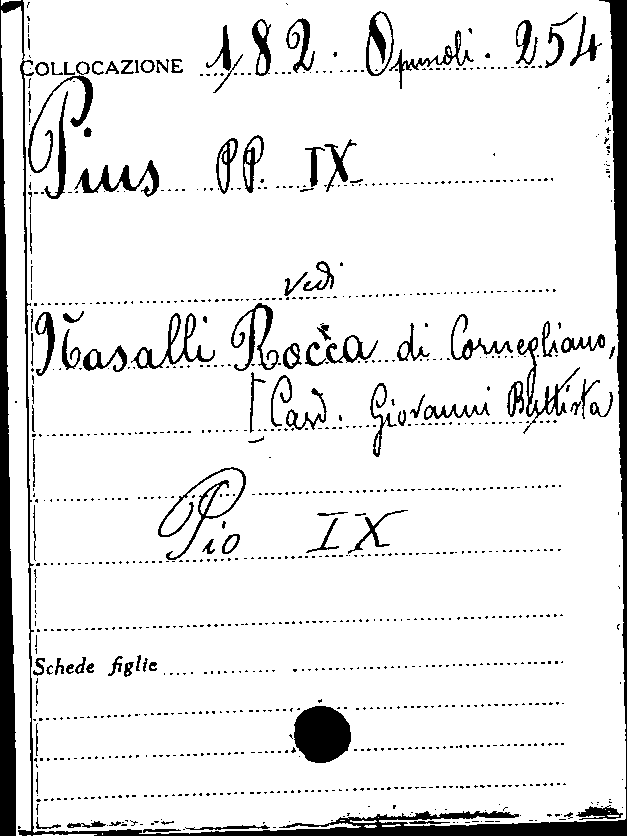 COLLOCAZIONE 182. Opuscoli. 254
Pius PP. IX
vedi
Nasalli Rocca di Cornegliano,
[Card. Giovanni Battista
Pio IX
Schede figlie